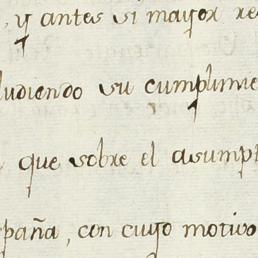 , y antes si mayor re
ludiendo su cumplimie
que sobre el asumpt
spaña, con cuyo motivo